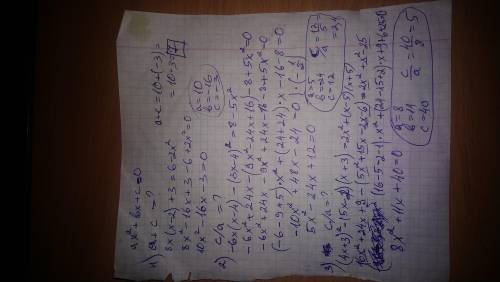 ax² + bx + c = 0
1) a + c = ?
8x(x-2) + 3 = 6 - 2x²
8x² - 16x + 3 - 6 + 2x² = 0
10x² - 16x - 3 = 0
a = 10
b = -16
c = -3
a + c = 10 + (-3) =
= 10 - 3 = 7
2) c/a = ?
-6x(x-4) - (3x-4)² = 8 - 5x²
-6x² + 24x - (9x² - 24x + 16) - 8 + 5x² = 0
-6x² + 24x - 9x² + 24x - 16 - 8 + 5x² = 0
(-6 - 9 + 5)·x² + (24 + 24)·x - 16 - 8 = 0
-10x² + 48x - 24 = 0
5x² - 24x + 12 = 0
a = 5
b = -24
c = 12
c/a = 12/5 = 2,4
3) c/a = ?
(4x+3)² + (5x-2)(x+3) = 2x² + (x-5)(x+5)
16x² + 24x + 9 - (5x² + 15x - 2x - 6) = 2x² + x² - 25
8x² + 11x + 40 = 0
a = 8
b = 11
c = 40
c/a = 40/8 = 5